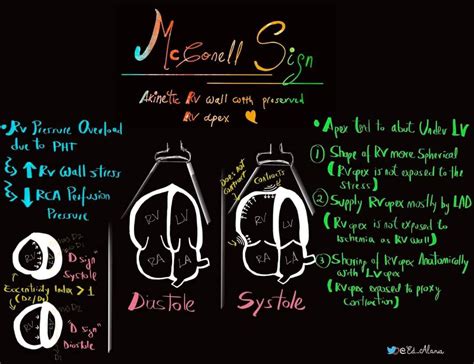 McConell Sign
Akinetic RV wall with preserved
RV apex
• RV Pressure Overload
due to PHT
↑ RV Wall stress
↓ RCA Perfusion
Pressure
"D sign"
Systole
Eccentricity Index > 1
(D2/D1)
"D sign"
Diastole
RV LV
RA LA
Diastole
Does not
contract
Contracts
RV LV
RA LA
Systole
• Apex tend to
about Under LV
① Shape of RV more Spherical
(RV apex is not exposed to the
stress)
② Supply RV apex mostly by LAD
(RV apex is not exposed to
Ischemia as RV wall)
③ Sharing of RV apex Anatomically
with LV apex
(RV apex exposed to proxy
contraction)